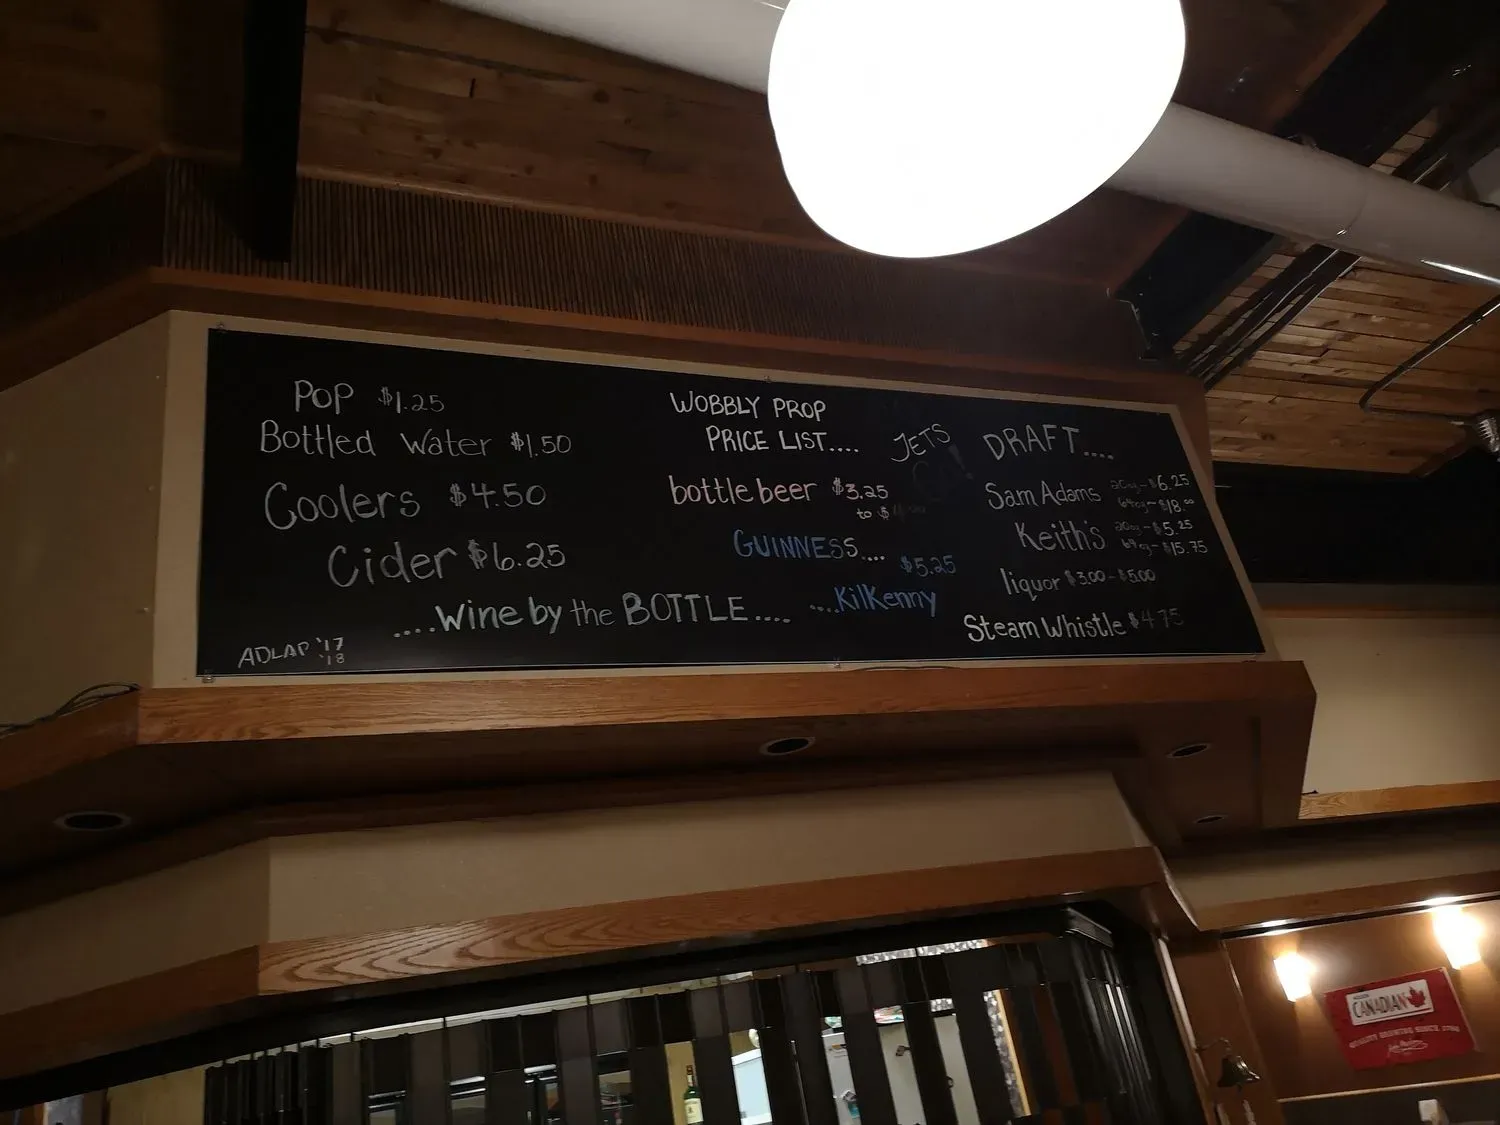 POP $1.25
Bottled Water $1.50
Coolers $4.50
Cider $6.25
....Wine by the BOTTLE....
ADLAP '17
'18
WOBBLY PROP
PRICE LIST....
JETS
bottle beer $3.25
to $
GUINNESS....
$5.25
....Kilkenny
DRAFT....
Sam Adams 20oz-$6.25
64oz-$18.00
Keith's 20oz-$5.25
64oz-$15.75
liquor $3.00-$5.00
Steam Whistle $4.75
CANADIAN